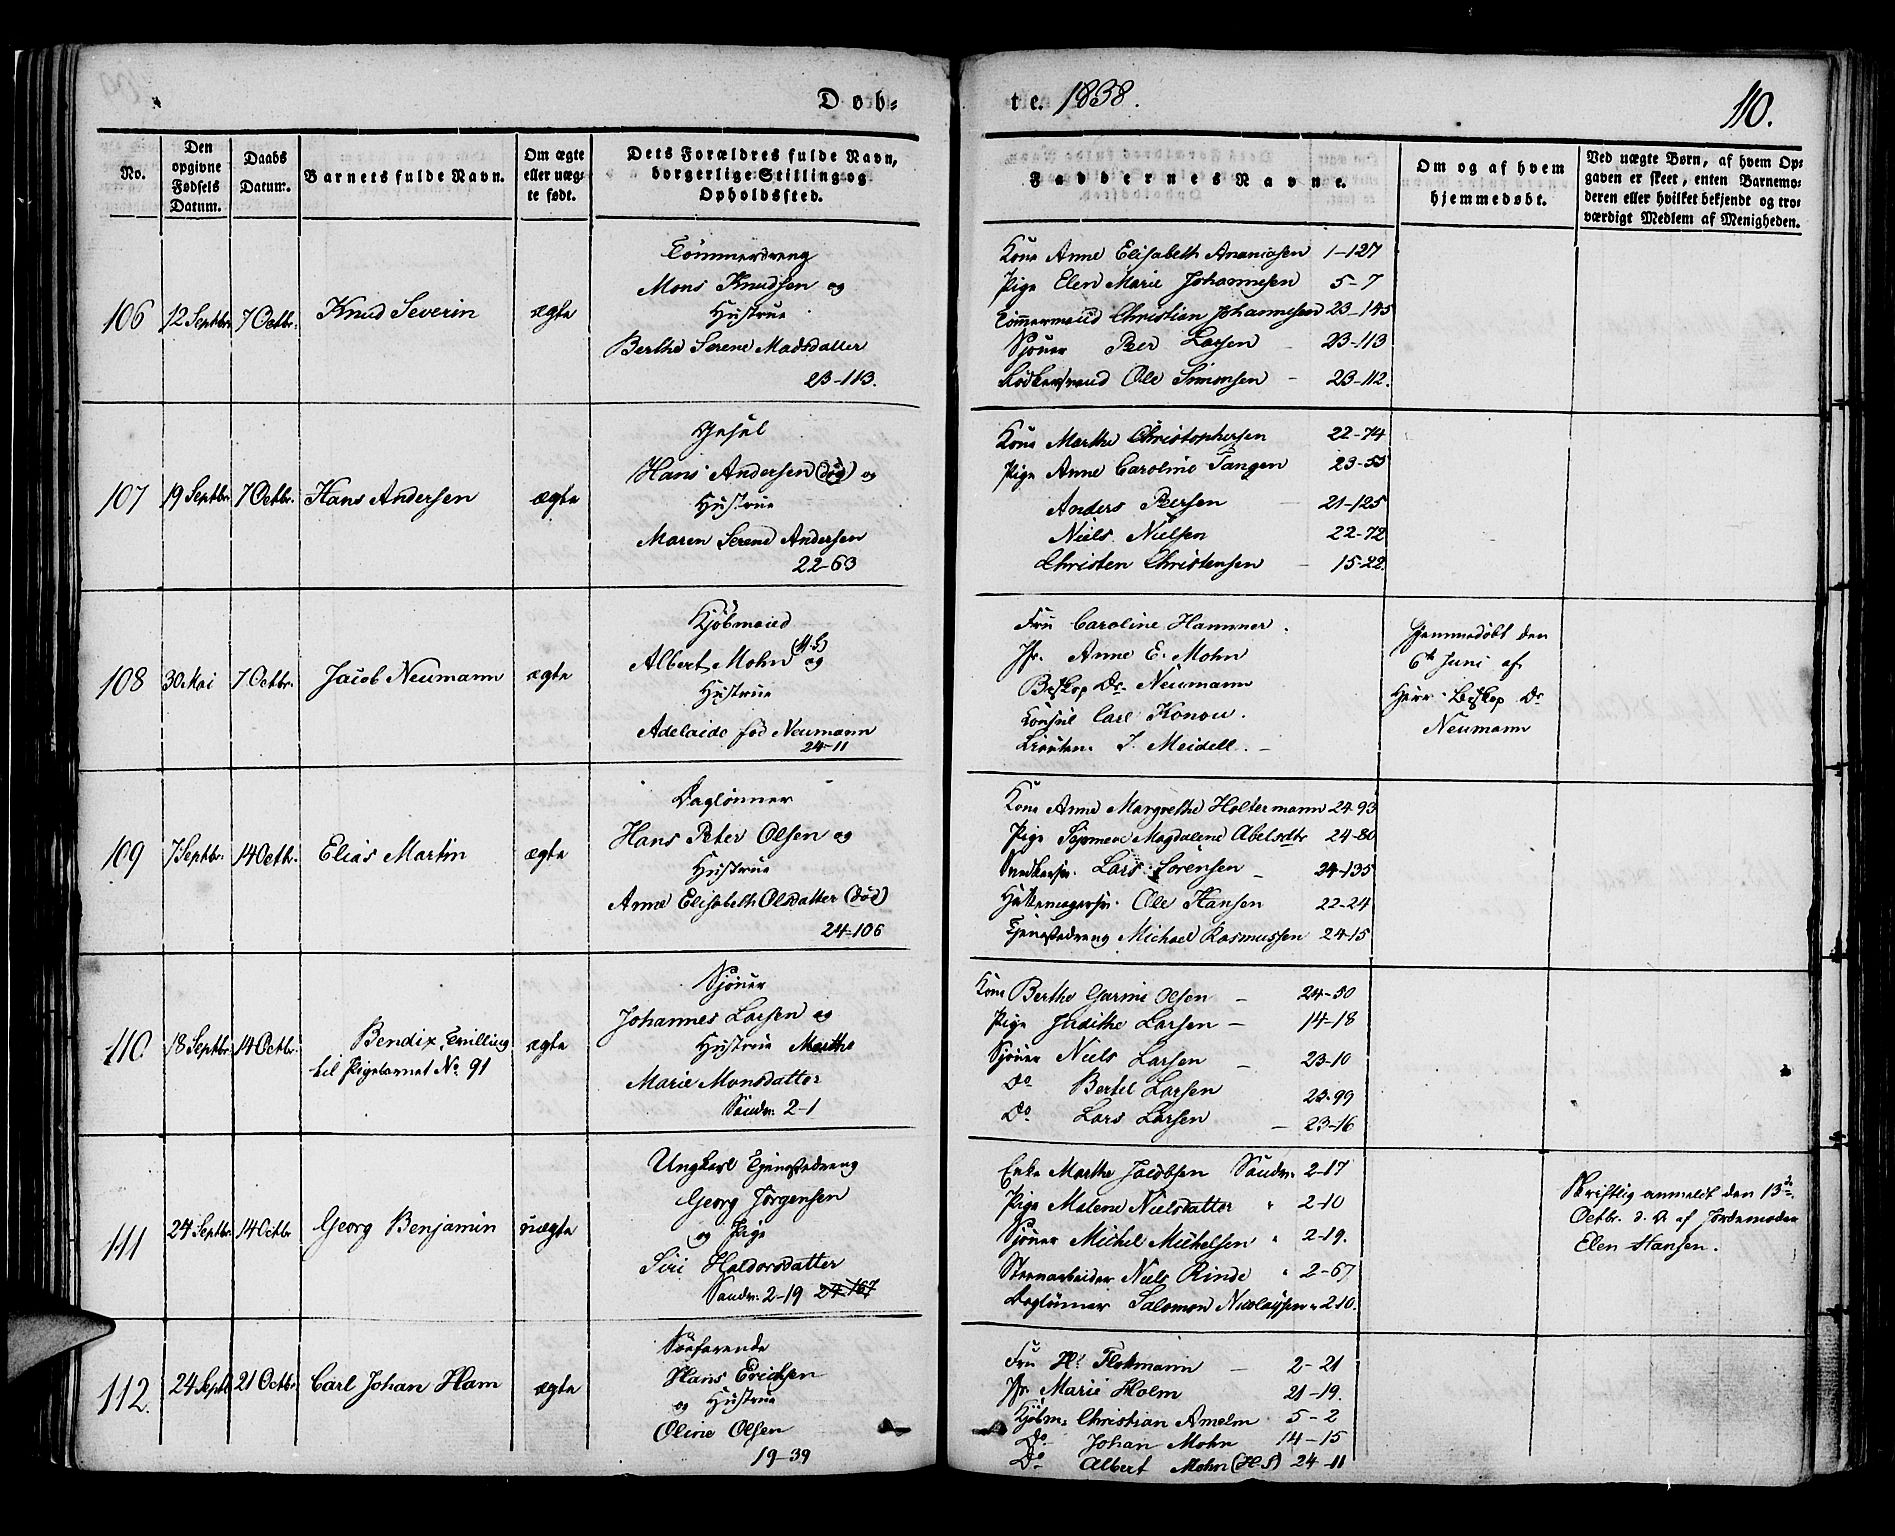 Døb-
te. 1838.
110.
No.
Den opgivne Fødsels Datum.
Daabs Datum.
Barnets fulde Navn.
Om ægte eller uægte født.
Dets Forældres fulde Navn, borgerlige Stilling og Opholdssted.
Faddernes Navne.
Om og af hvem hjemmedøbt.
Ved uægte Børn, af hvem Opgaven er skeet, enten Barnemoderen eller hvilket bekjendt og troværdigt Medlem af Menigheden.
106
12 Septbr.
7 Octbr.
Knud Severin
ægte
Tømmerdreng
Mons Knudsen og
Hustrue
Berthe Serene Madsdatter
23-113.
Kone Anne Elisabeth Ananiasen 1-127
Pige Elen Marie Johannesen 5-7
Tømmermand Christian Johannesen 23-145
Sjöuer Peer Larsen - 23-113
Ole Simonsen - 23-112.
107
19 Septbr.
7 Octbr.
Hans Andersen
ægte
Hans Andersen (död) og
Hustrue
Maren Serene Andersen
22-63
Kone Marthe Christophersen 22-74
Pige Anne Caroline Tangen 23-55
Anders Peersen 21-125
Niels Nielsen 22-72
Christen Christensen - 15-22
108
30 Mai
7 Octbr.
Jacob Neumann
ægte
Kjøbmand
Albert Mohn (H.S) og
Hustrue
Adelaide fød Neumann
24-11
Fru Caroline Hammer.
Jfr. Anne E. Mohn
Biskop Dr. Neumann
Konsul Carl Konow.
J. Meidell. -
Hjemmedøbt den
6te Juni af
Herr Biskop Dr
Neumann
109
7 Septbr.
14 Octbr.
Elias Martin
ægte
Daglönner
Hans Peter Olsen og
Hustrue
Anne Elisabeth Olsdatter (död)
24-106
Kone Anne Margrethe Holtermann 24-93
Pige Magdalene Abelsdtr 24-80
Snedkersv. Lars Sørensen - 24-135
Hattemagersv. Ole Hansen 22-24
Tjenestedreng Michael Rasmussen 24-15
110
18 Septbr.
14 Octbr.
Bendix, Tvilling
til Pigebarnet No. 91
ægte
Sjöuer
Johannes Larsen og
Hustrue Marthe
Marie Monsdatter
Sandv. 2-1
Kone Berthe Gurine Olsen - 24-50
Pige Judithe Larsen - 14-18
Sjöuer Niels Larsen - 23-10
Do Bertel Larsen 23-99
Do. Lars Larsen - 23-16
111
24 Septbr.
14 Octbr
Georg Benjamin
uægte
Ungkarl Tjenestedreng
Georg Jørgensen
og Pige
Siri Haldorsdatter
Sandv. 2-19 24-167
Enke Marthe Jacobsen Sandv. 2-17
Pige Malene Nielsdatter " 2-10
Sjöuer Michel Michelsen " 2-19.
Steenarbeider Niels Rinde " 2-67
Daglönner Salomon Nicolaysen " 2-10.
Skriftlig anmeldt den 13de
Octbr. d. A. af Jordemoder
Elen Hansen.
112.
24 Septb
21 Octbr.
Carl Johan Ham
ægte
Søefarende
Hans Ericksen
og Hustrue
Oline Olsen
19-39
Fru H. - 2-21
Jfr. Marie Holm 21-19.
Kjöbm. Christian Amelm 5-2
Do. Johan Mohn 14-15
Do. Albert Mohn (H.S) 24-11